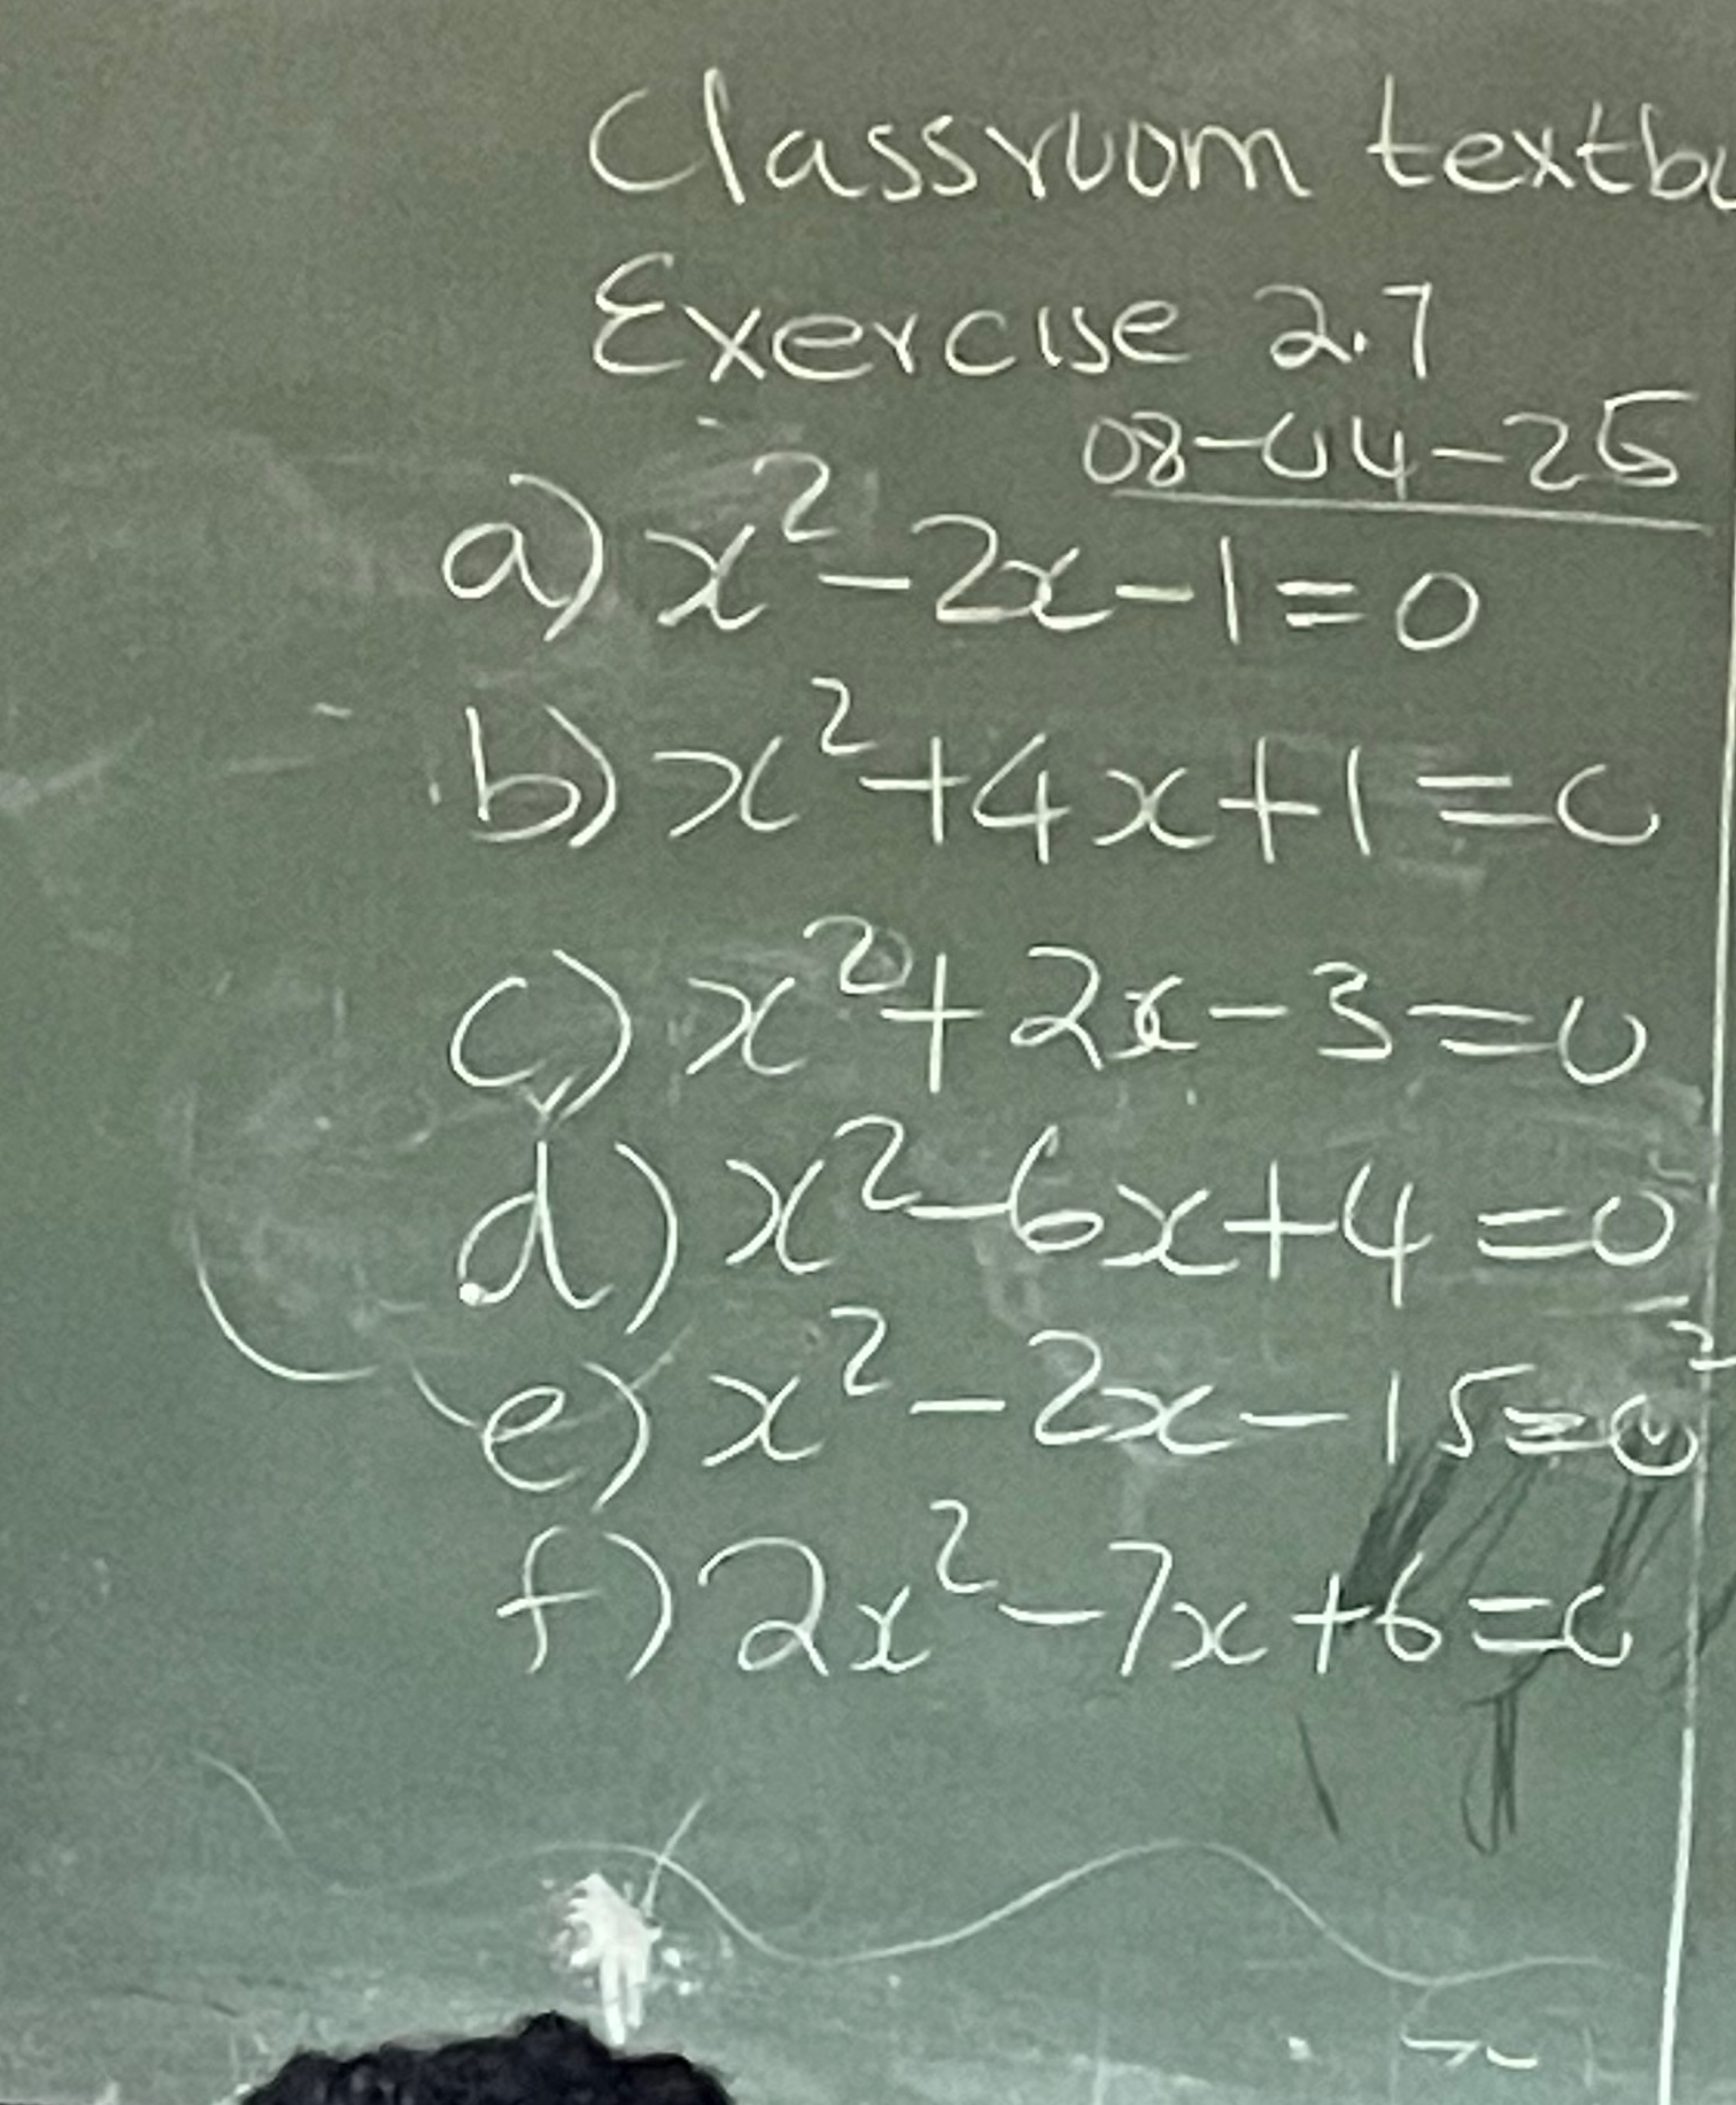 Classroom
Exercise 2.7
08-04-25
a) x² - 2x - 1 = 0
b) x² + 4x + 1 = 0
c) x² + 2x - 3 = 0
d) x² - 6x + 4 = 0
e) x² - 2x - 15 = 0
f) 2x² - 7x + 6 = 0